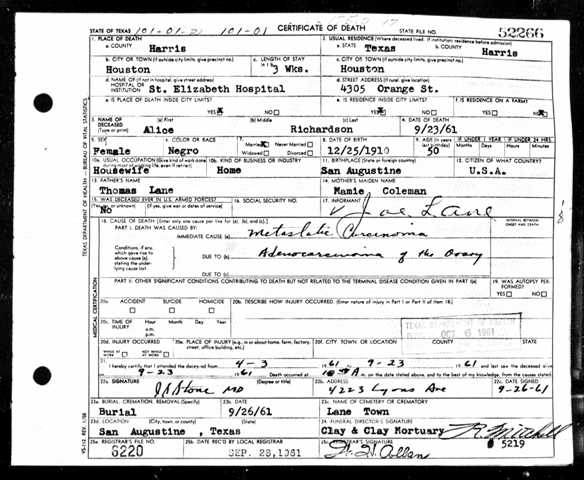 STATE OF TEXAS 101-01-2 101-01 CERTIFICATE OF DEATH STATE FILE NO. 52266
1. PLACE OF DEATH 2. USUAL RESIDENCE (Where deceased lived. If institution: residence before admission)
a. COUNTY Harris a. STATE Texas b. COUNTY Harris
b. CITY OR TOWN (If outside city limits, give precinct no.) c. LENGTH OF STAY c. CITY OR TOWN (If outside city limits, give precinct no.)
Houston 3 Wks. Houston
d. NAME OF (If not in hospital, give street address) d. STREET ADDRESS (If rural, give location)
HOSPITAL OR INSTITUTION St. Elizabeth Hospital 4305 Orange St.
e. IS PLACE OF DEATH INSIDE CITY LIMITS? e. IS RESIDENCE INSIDE CITY LIMITS? f. IS RESIDENCE ON A FARM?
YES NO YES NO YES NO
3. NAME OF DECEASED (a) First (b) Middle (c) Last 4. DATE OF DEATH
(Type or print) Alice Richardson 9/23/61
5. SEX 6. COLOR OR RACE 7. Married Never Married 8. DATE OF BIRTH 9. AGE (In years IF UNDER 1 YEAR IF UNDER 24 HRS
Female Negro Widowed Divorced 12/25/1910 50 Months Days Hours Min.
10a. USUAL OCCUPATION (Give kind of work done 10b. KIND OF BUSINESS OR INDUSTRY 11. BIRTHPLACE (State or foreign country) 12. CITIZEN OF WHAT COUNTRY?
during most of working life, even if retired)
Housewife Home San Augustine U.S.A.
13. FATHER'S NAME 14. MOTHER'S MAIDEN NAME
Thomas Lane Mamie Coleman
15. WAS DECEASED EVER IN U.S. ARMED FORCES? 16. SOCIAL SECURITY NO. 17. INFORMANT
No (If yes, give war or dates of service) Joe Lane
18. CAUSE OF DEATH [Enter only one cause per line for (a), (b), and (c).] INTERVAL BETWEEN ONSET AND DEATH
PART I. DEATH WAS CAUSED BY:
IMMEDIATE CAUSE (a) Metastatic Carcinoma
Conditions, if any, which gave rise to above cause (a), stating the underlying cause last.
DUE TO (b) Adenocarcinoma of the Ovary
DUE TO (c)
PART II. OTHER SIGNIFICANT CONDITIONS CONTRIBUTING TO DEATH BUT NOT RELATED TO THE TERMINAL DISEASE CONDITION GIVEN IN PART I(a) 19. WAS AUTOPSY PERFORMED?
YES NO
20a. ACCIDENT SUICIDE HOMICIDE 20b. DESCRIBE HOW INJURY OCCURRED. (Enter nature of injury in Part I or Part II of item 18.)
20c. TIME OF INJURY Hour Month Day Year
a.m.
p.m.
OCT 6 1961
20d. INJURY OCCURRED 20e. PLACE OF INJURY (e.g., in or about home, farm, factory, street, office building, etc.) 20f. CITY, TOWN, OR LOCATION COUNTY STATE
WHILE AT WORK NOT WHILE AT WORK
21. I hereby certify that I attended the deceased from 4-3 1961 9-23 1961 and last saw the deceased alive
9-23 1961 Death occurred at m. on the date stated above; and to the best of my knowledge, from the causes stated.
22a. SIGNATURE (Degree or title) 22b. ADDRESS 22c. DATE SIGNED
J.A. Stone MD 4223 Lyons Ave 9-26-61
23a. BURIAL, CREMATION, REMOVAL (Specify) 23b. DATE 23c. NAME OF CEMETERY OR CREMATORY
Burial 9/26/61 Lane Town
23d. LOCATION (City, town, or county) (State) 24. FUNERAL DIRECTOR'S SIGNATURE
San Augustine, Texas Clay & Clay Mortuary R. Mitchell
5219
25a. REGISTRAR'S FILE NO. 25b. DATE REC'D BY LOCAL REGISTRAR 25c. REGISTRAR'S SIGNATURE
6220 SEP. 28, 1961
MEDICAL CERTIFICATION
TEXAS DEPARTMENT OF HEALTH - BUREAU OF VITAL STATISTICS